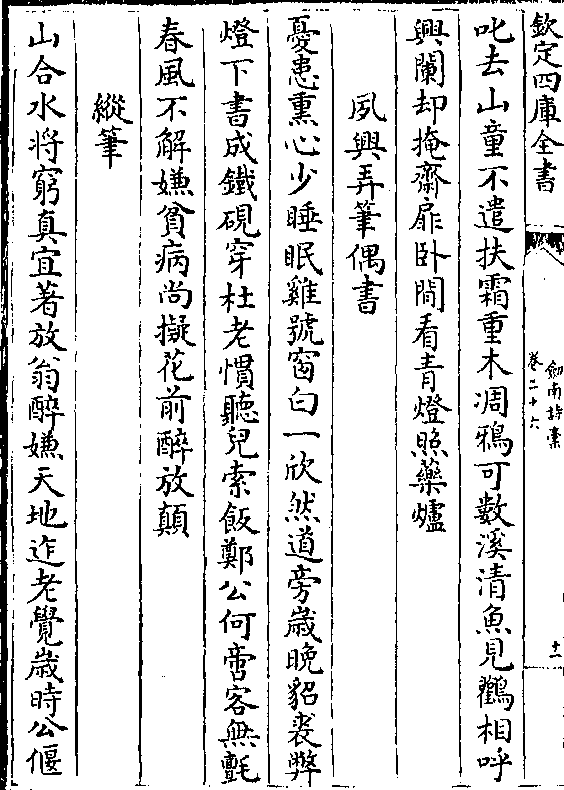 欽定四庫全書
劔南詩稾
卷二十六
十一
叱去山童不遣扶霜重木凋鴉可數溪清魚見鸛相呼
興闌却掩齋扉卧閒看青燈照藥爐
夙興弄筆偶書
憂患熏心少睡眠雞號窗白一欣然道旁歲晚貂裘弊
燈下書成鐵硯穿杜老慣聽兒索飯鄭公何啻客無氊
春風不解嫌貧病尚擬花前醉放顛
縱筆
山合水將窮真宜著放翁醉嫌天地迮老覺歲時公偃